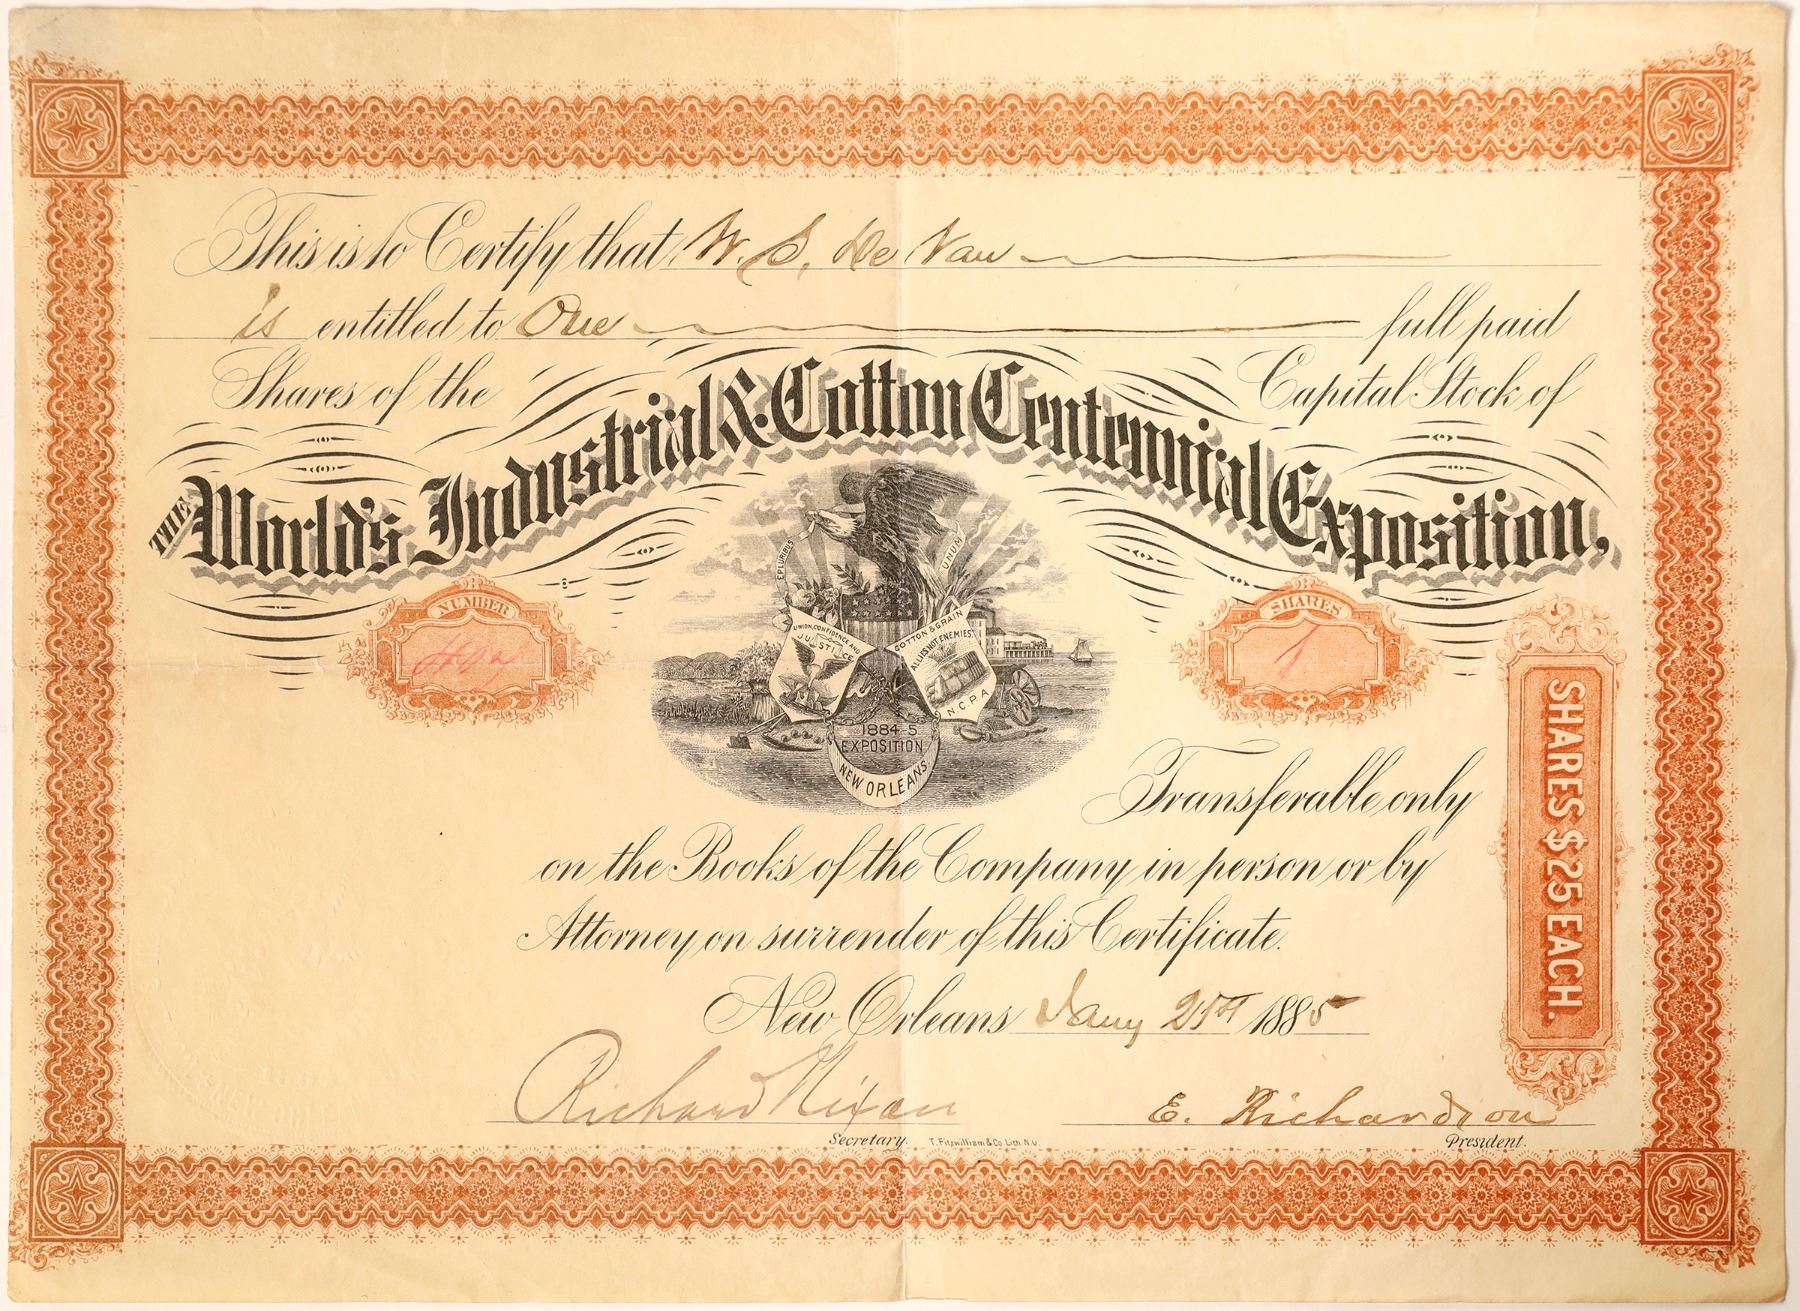 This is to Certify that W. S. De Van
is entitled to One full paid
Shares of the Capital Stock of
THE World's Industrial & Cotton Centennial Exposition,
E PLURIBUS UNUM
UNION, CONFIDENCE AND
JUSTICE
COTTON & GRAIN
ALLIS NOT ENEMIES
N. C. P. A
1884-5
EXPOSITION
NEW ORLEANS
NUMBER
SHARES
1
SHARES $25 EACH.
Transferable only
on the Books of the Company in person or by
Attorney on surrender of this Certificate.
New Orleans Jany 21st 1885
Richard Nixon
E. Richardson
Secretary. T. Fitzwilliam & Co. Lith. N.O. President.